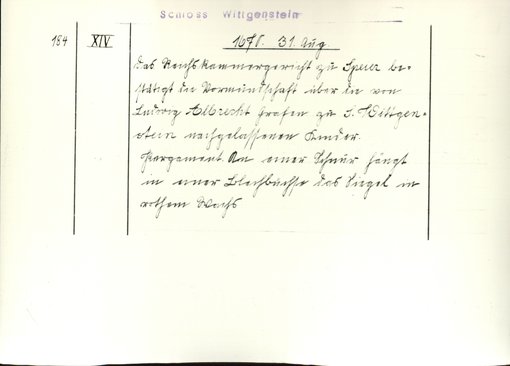 Schloss Wittgenstein
184 XIV 1671. 31. Aug.
Das Reichskammergericht zu Speier be-
stätigt die Vormundschaft über die von
Ludwig Albrecht Grafen zu S. Wittgen-
stein nachgelassenen Kinder.
Pergament. An einer Schnur hängt
in einer Blechbüchse das Siegel in
rothem Wachs